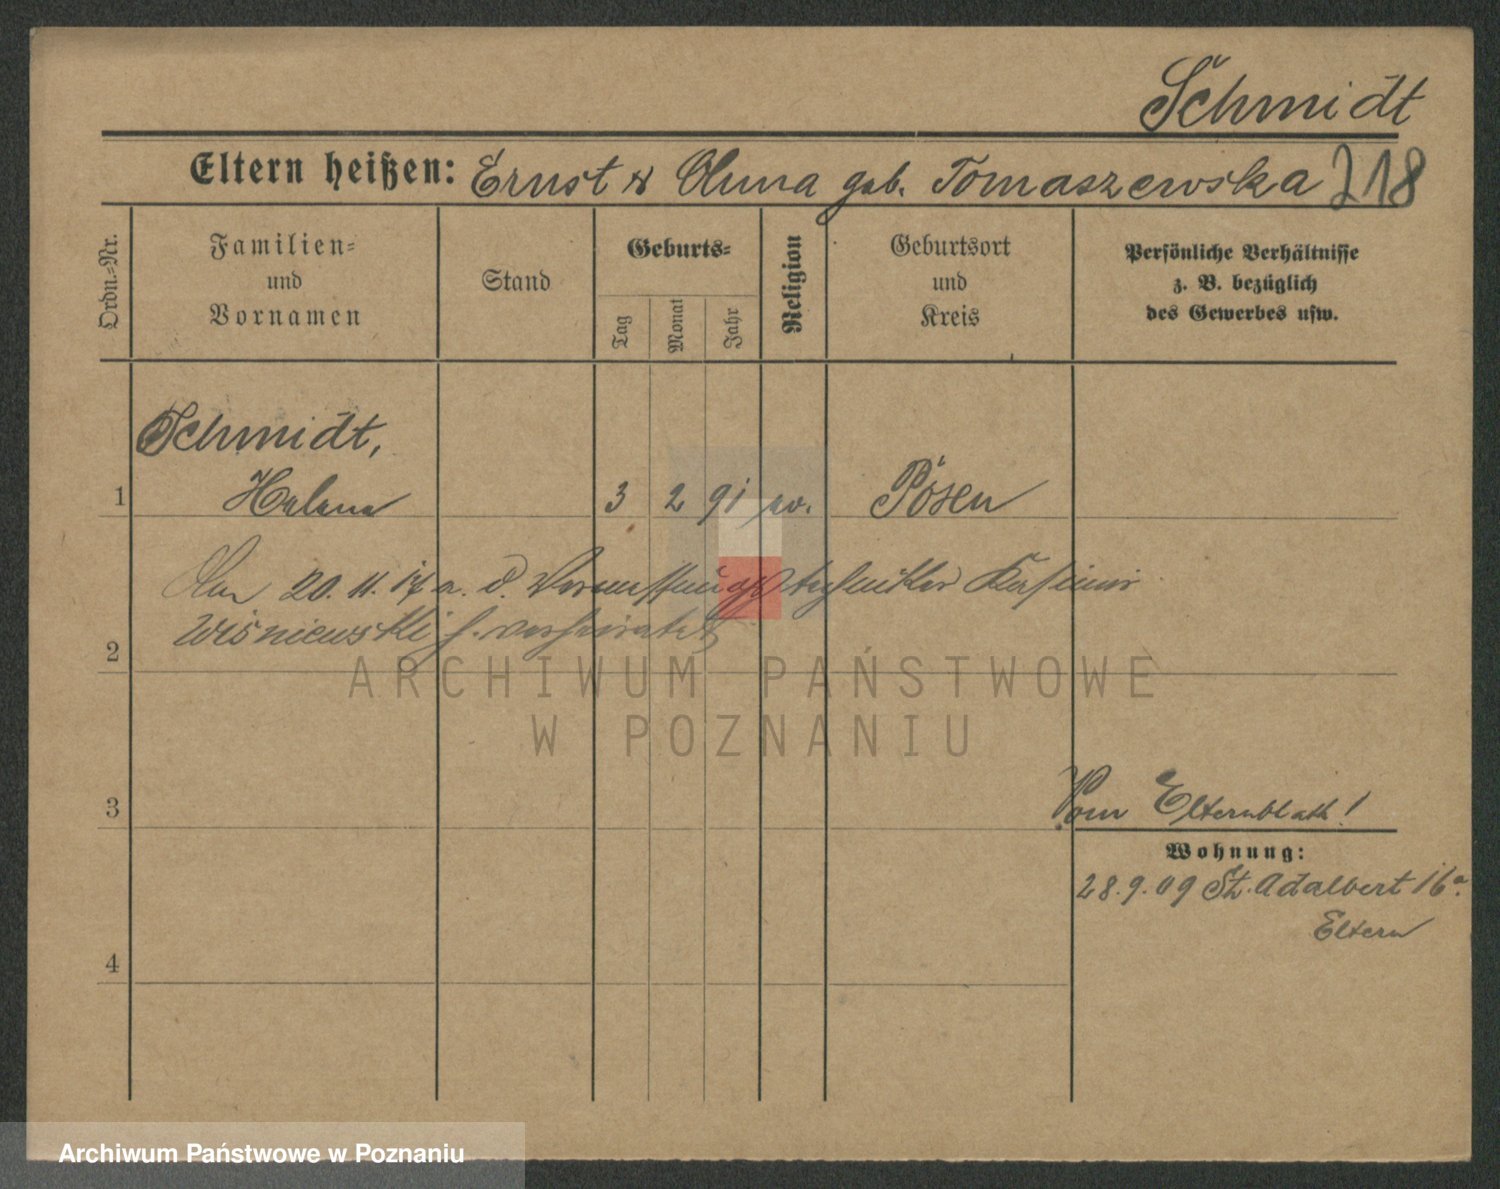 Schmidt
Eltern heißen: Ernst & Anna geb. Tomaszewska 218
Ordn.-Nr.
Familien-
und
Vornamen
Stand
Geburts-
Tag
Monat
Jahr
Religion
Geburtsort
und
Kreis
Persönliche Verhältnisse
z. B. bezüglich
des Gewerbes usw.
Schmidt,
1 Helene 3 2 91 ev. Posen
Am 20. 11. 17 a. d. Vermessungstechniker Kasimir
Wisniewski h. verheiratet
2
ARCHIWUM PAŃSTWOWE
W POZNANIU
3
Vom Elternblatt!
Wohnung:
28.9.09 St. Adalbert 16a.
Eltern
4
Archiwum Państwowe w Poznaniu